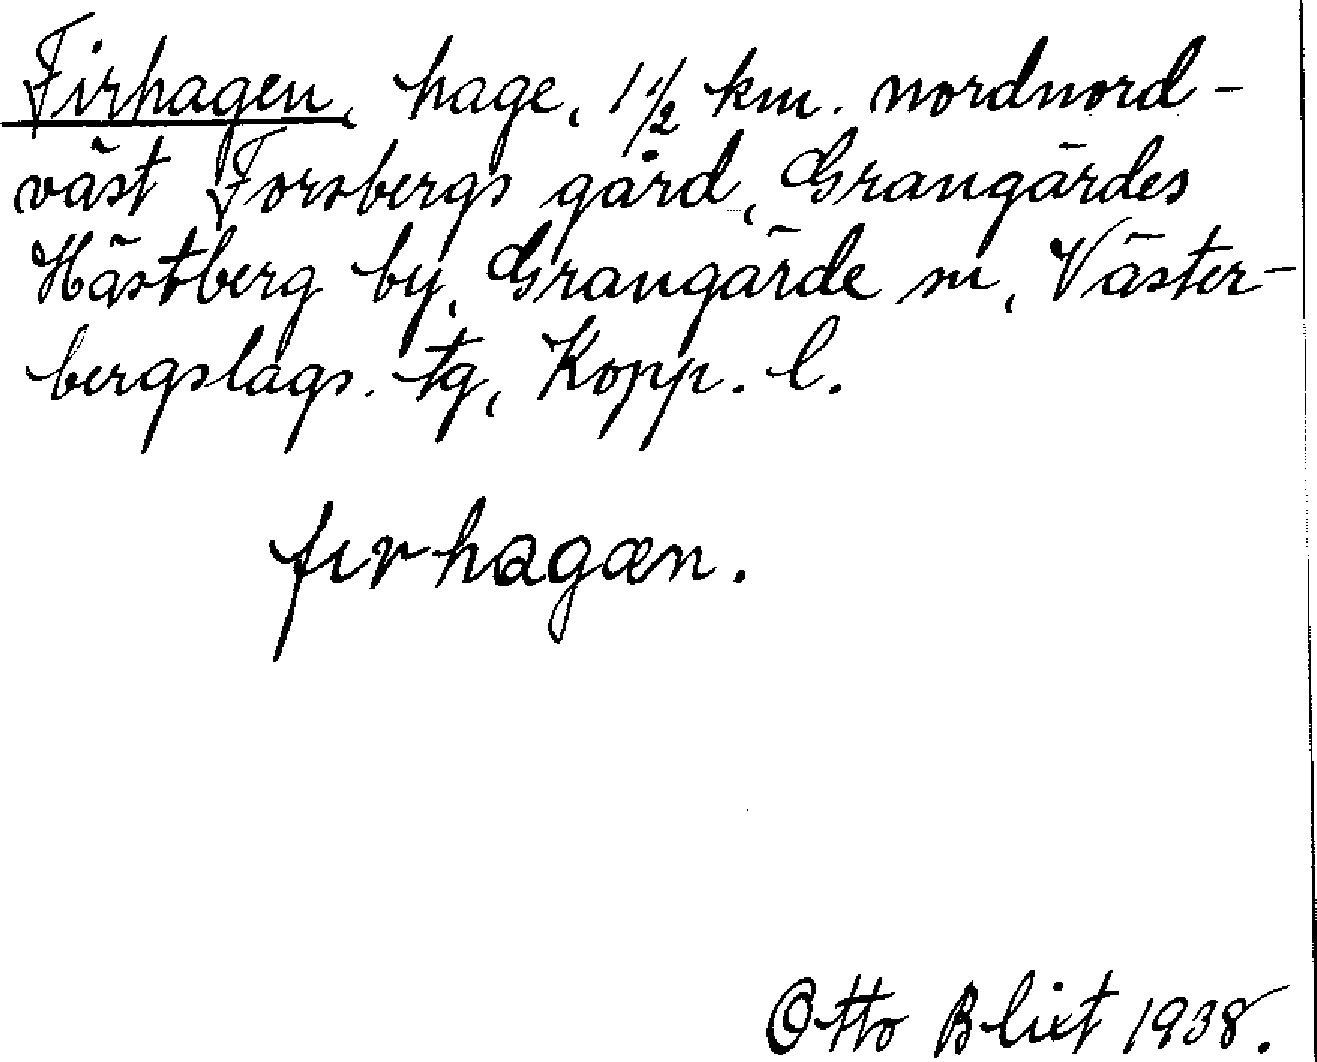 Firhagen, hage, 1 1/2 km. nordnord-
väst Forsbergs gård, Grangärdes
Hästberg by, Grangärde sn, Väster-
bergslags. tg, Kopp. l.
firhagæn.
Otto Blixt 1938.